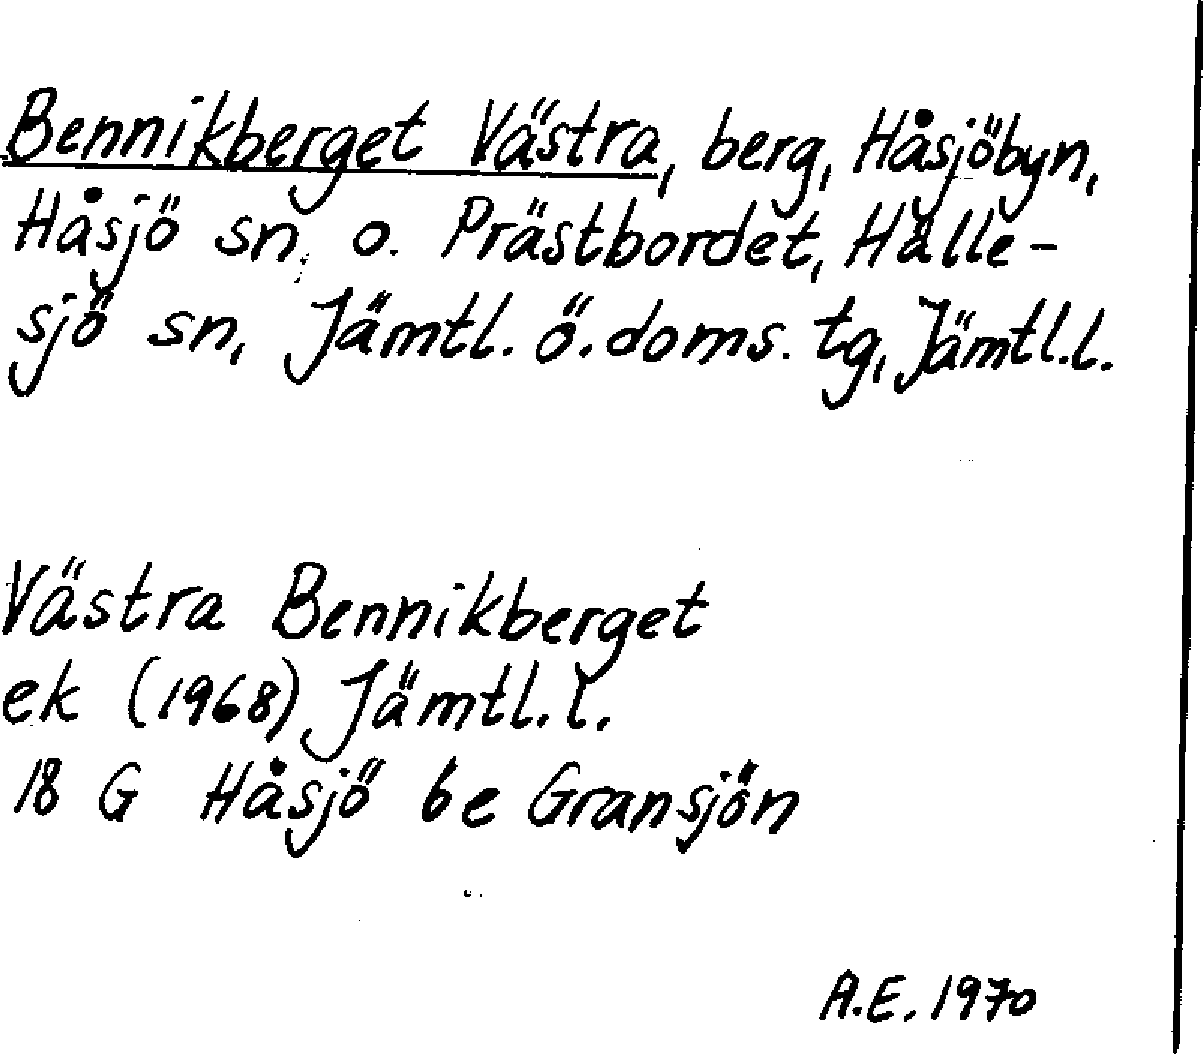 Bennikberget Västra, berg, Håsjöbyn,
Håsjö sn, o. Prästbordet, Hälle-
sjö sn, Jämtl. ö. doms. tg, Jämtl.l.
Västra Bennikberget
ek (1968) Jämtl.l.
18 G Håsjö 6e Gransjön
A.E. 1970